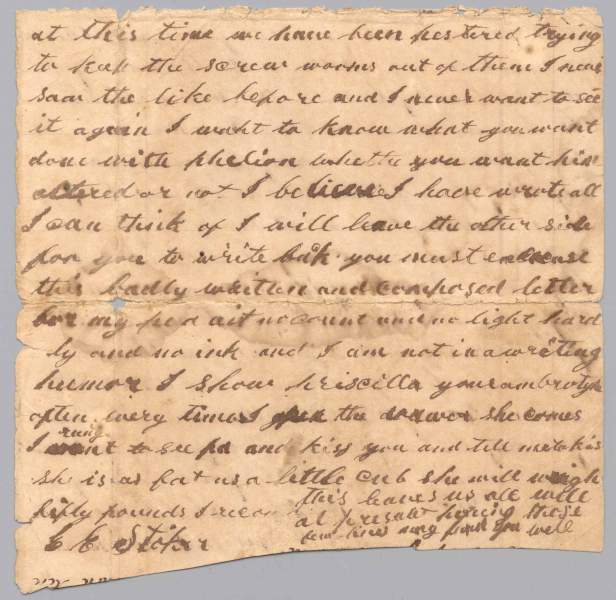 at this time we have been pestered trying
to keep the screw worms out of them I never
saw the like before and I never want to see
it again I waht to know what you want
done with phelion whethe you want him
altered or not I believe I have wrote all
I can think of I will leave the other side
for you to write back you must excuse
this badly written and composed letter
for my ped ait no count and no light hard
ly and no ink and I am not in a writing
humor I show priscilla your ambrotype
often every time I open the drawer she comes
runing
I want to see pa and kiss you and tell me to kis
she is as fat as a little cub she will weigh
fifty pounds I recon
this leaves us all well
at presant hoping these
few lines may find you well
E E Stoker